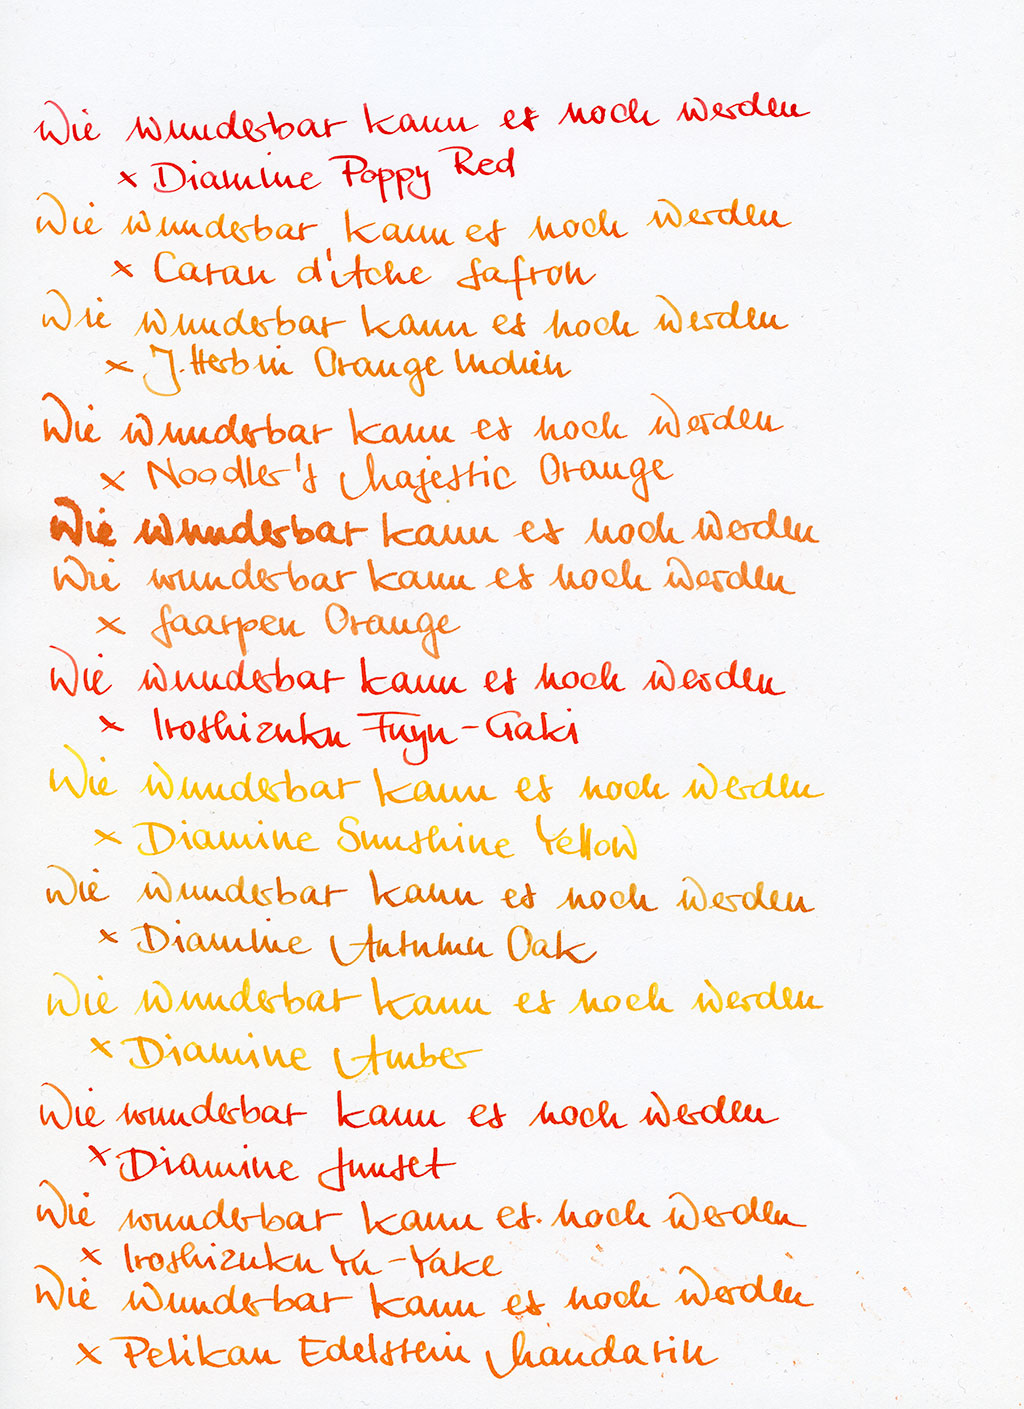 Wie wunderbar kann es noch werden
x Diamine Poppy Red
Wie wunderbar kann es noch werden
x Caran d'Ache Safron
Wie wunderbar kann es noch werden
x J. Herbin Orange Indien
Wie wunderbar kann es noch werden
x Noodler's Majestic Orange
Wie wunderbar kann es noch werden
Wie wunderbar kann es noch werden
x Saarpen Orange
Wie wunderbar kann es noch werden
x Iroshizuku Fuyu-Gaki
Wie wunderbar kann es noch werden
x Diamine Sunshine Yellow
Wie wunderbar kann es noch werden
x Diamine Autumn Oak
Wie wunderbar kann es noch werden
x Diamine Amber
Wie wunderbar kann es noch werden
x Diamine Sunset
Wie wunderbar kann es noch werden
x Iroshizuku Yu-Yake
Wie wunderbar kann es noch werden
x Pelikan Edelstein Mandarin